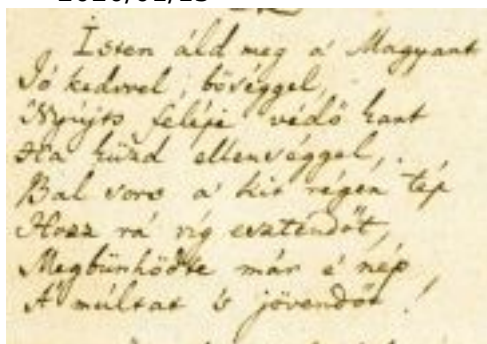 Isten áld meg a' Magyart
Jó kedvvel, bőséggel,
Nyújts feléje védő kart
Ha küzd ellenséggel,
Bal sors a' kit régen tép
Hozz rá víg esztendőt,
Megbűnhödte már e' nép
A' múltat 's jövendőt!